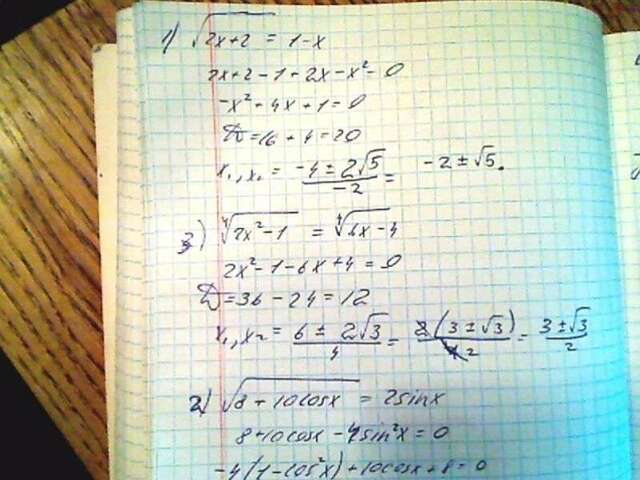 1) √(2x+2) = 1-x
2x+2-1+2x-x²=0
-x²+4x+1=0
D=16+4=20
x₁,x₂ = (-4±2√5)/(-2) = -2±√5.
3) ⁴√(2x²-1) = ⁴√(6x-4)
2x²-1-6x+4=0
D=36-24=12
x₁,x₂ = (6±2√3)/4 = 2(3±√3)/(4 2) = (3±√3)/2
2) √(8+10cosx) = 2sinx
8+10cosx-4sin²x=0
-4(1-cos²x)+10cosx+8=0